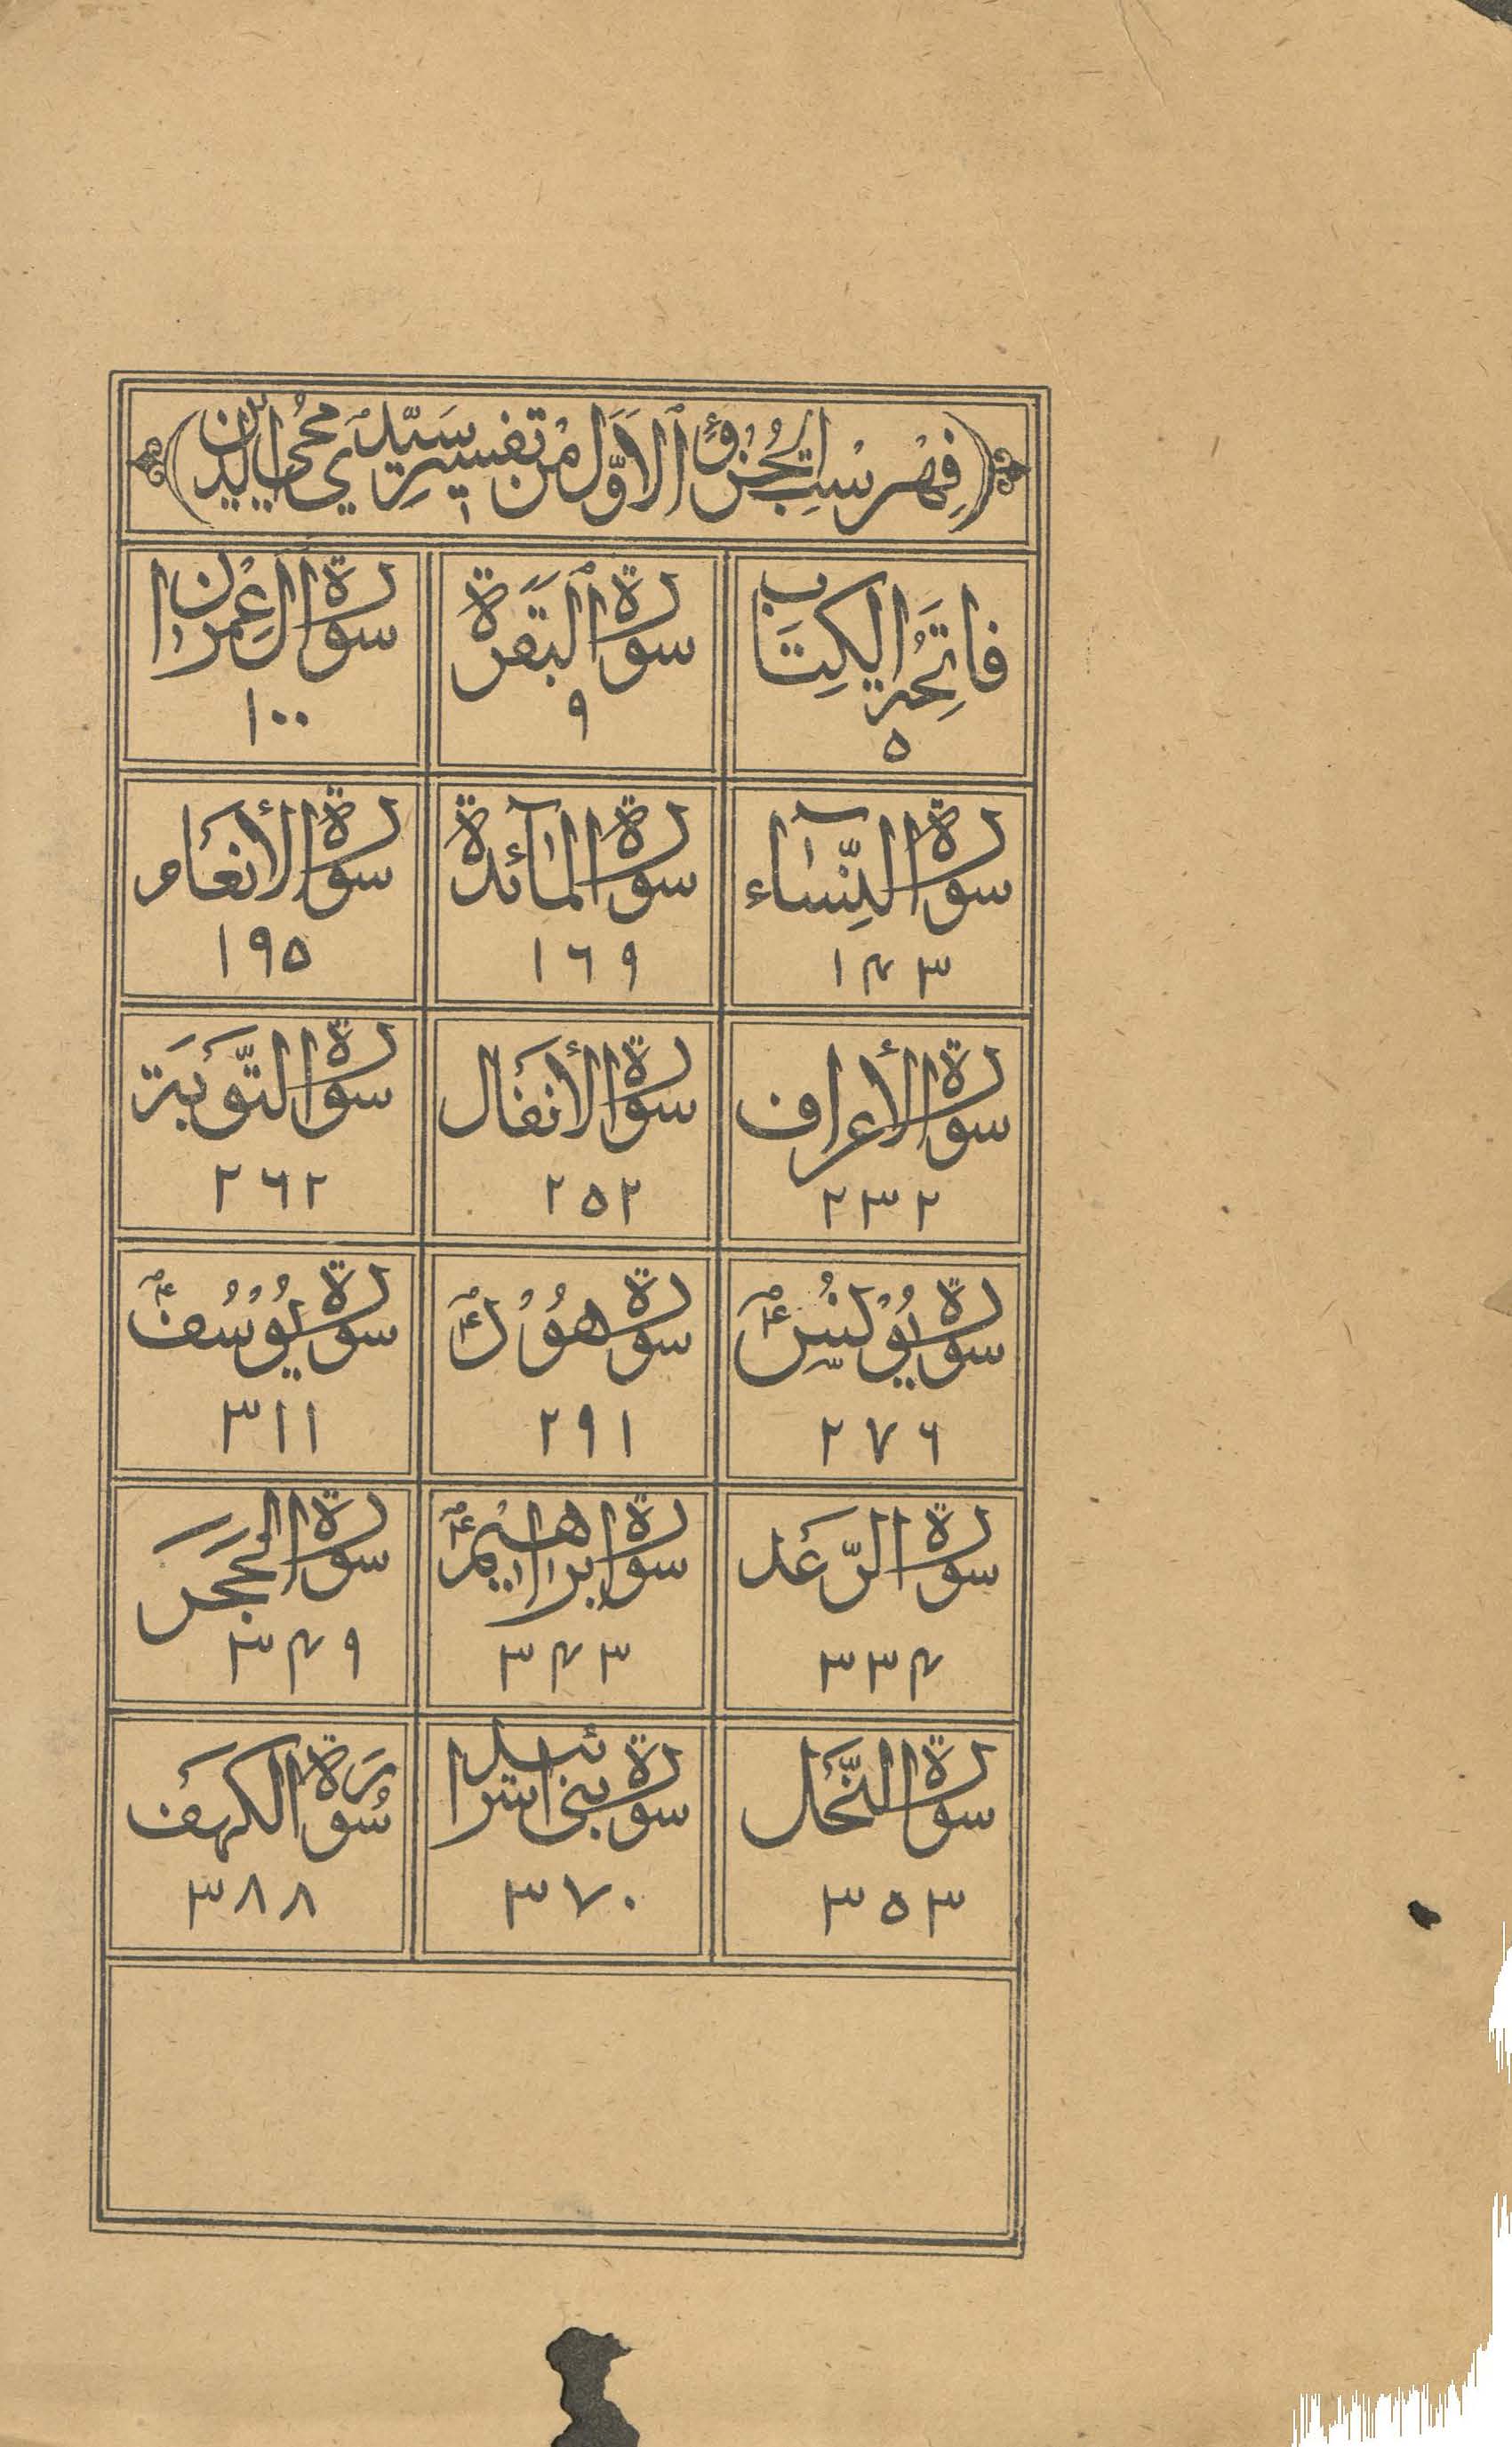 (فِهْرِسْتُ الْجُزْءِ ٱلْاَوَّلِ مِنْ تَفْسِيرِ سَيِّدِي مُحْيِ الدِّين)
فَاتِحَةُ الْكِتَاب
٥
سورة ٱلبَقَرَة
٩
سورة اٰل عِمْرٰن
١٠٠
سورة النِّسَآء
١٤٣
سورة المَآئدة
١٦٩
سورة الأنعَام
١٩٥
سورة الأعراف
٢٣٢
سورة الأنفَال
٢٥٢
سورة التَّوْبَة
٢٦٢
سورة يُوْنُس ؑ
٢٧٦
سورة هُوْد ؑ
٢٩١
سورة يُوْسُف ؑ
٣١١
سورة الرَّعَد
٣٣٤
سورة ابراهيْم ؑ
٣٤٣
سورة الحَجَر
٣٤٩
سورة النَّحَل
٣٥٣
سورة بنى اسرائيل
٣٧٠
سُورَة الكَهَف
٣٨٨